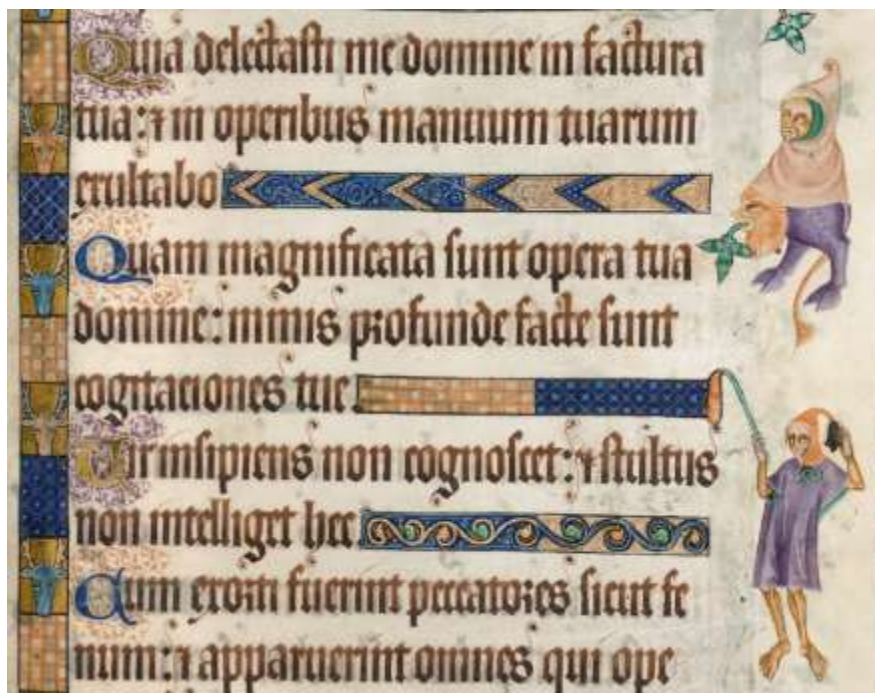 Quia delectasti me domine in factura
tua: ⁊ in operibus manuum tuarum
exultabo
Quam magnificata sunt opera tua
domine: nimis profunde facte sunt
cogitaciones tue
Vir insipiens non cognoscet: ⁊ stultus
non intelliget hec
Cum exorti fuerint peccatores sicut fe
num: ⁊ apparuerint omnes qui ope